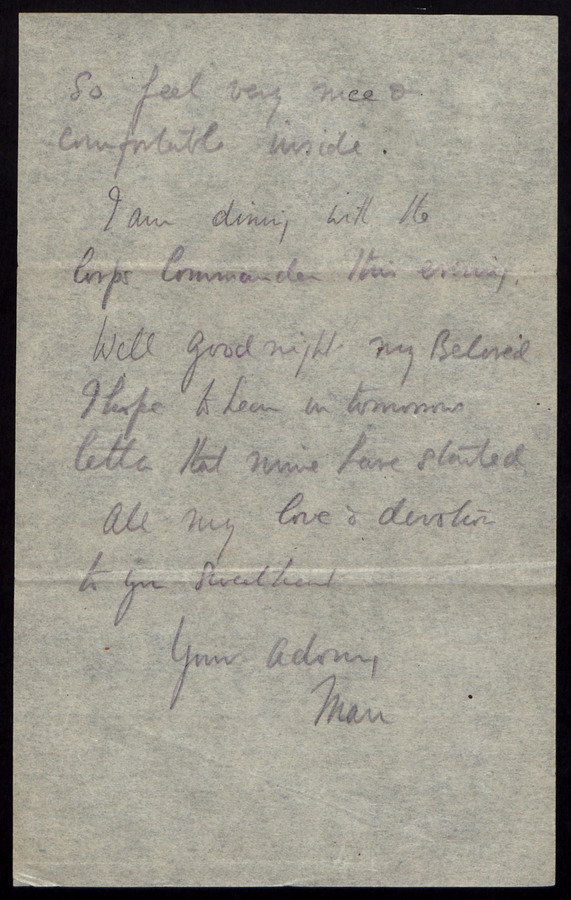 So feel very nice &
comfortable inside.
I am dining with the
Corps Commander this evening.
Well Good night my Beloved
I hope to hear in tomorrows
letter that mine have started
All my love & devotion
to you Sweetheart
Your Adoring
Man